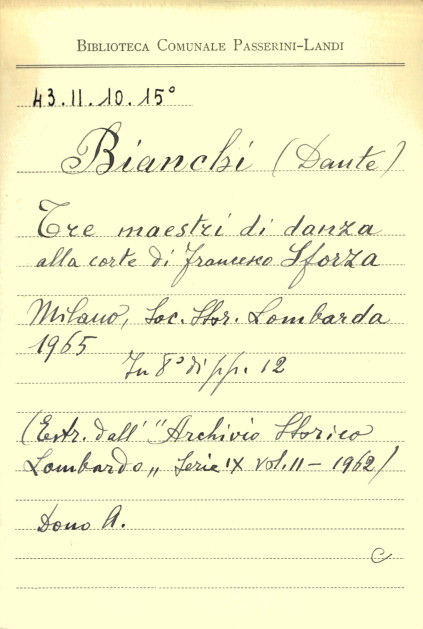 BIBLIOTECA COMUNALE PASSERINI-LANDI
43.II.10.15°
Bianchi (Dante)
Tre maestri di danza
alla corte di Francesco Sforza
Milano, Soc. Stor. Lombarda
1965
In 8° di pp. 12
(Estr. dall' "Archivio Storico
Lombardo„ Serie IX vol. II - 1962)
Dono A.
C